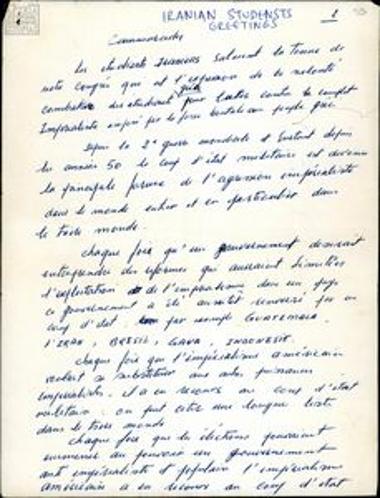 IRANIAN STUDENSTS
GREETINGS
1
Cammarades
Les étudiants Iraniens saluent la tenue de
notre congrès qui est l'expression de la volonté
combative des étudiants grecs pour lutter contre le complot
Impérialiste imposé par la force brutale au peuple grec.
Depuis la 2e guerre mondiale et surtout depuis
les années 50 le coup d'état militaire est devenu
la principale forme de l'agression impérialiste
dans le monde entier et en particulier dans
le tiers monde.
chaque fois qu'un gouvernement désirait
entreprendre des réformes qui auraient limitées
l'exploitation de l'impérialisme dans un pays
ce gouvernement a été aussitôt renversé par un
coup d'état : par exemple GUATEMALA,
l'IRAN, BRESIL, GANA, INDONESIE.
chaque fois que l'impérialisme américain
voulait se substituer aux autres puissances
impérialistes, il a eu recours au coup d'état
militaire : on peut citer une longue liste
dans le tiers monde
chaque fois que les élections pouvaient
emmener au pouvoir un gouvernement
anti impérialiste et populaire l'impérialisme
américain a eu recours au coup d'état